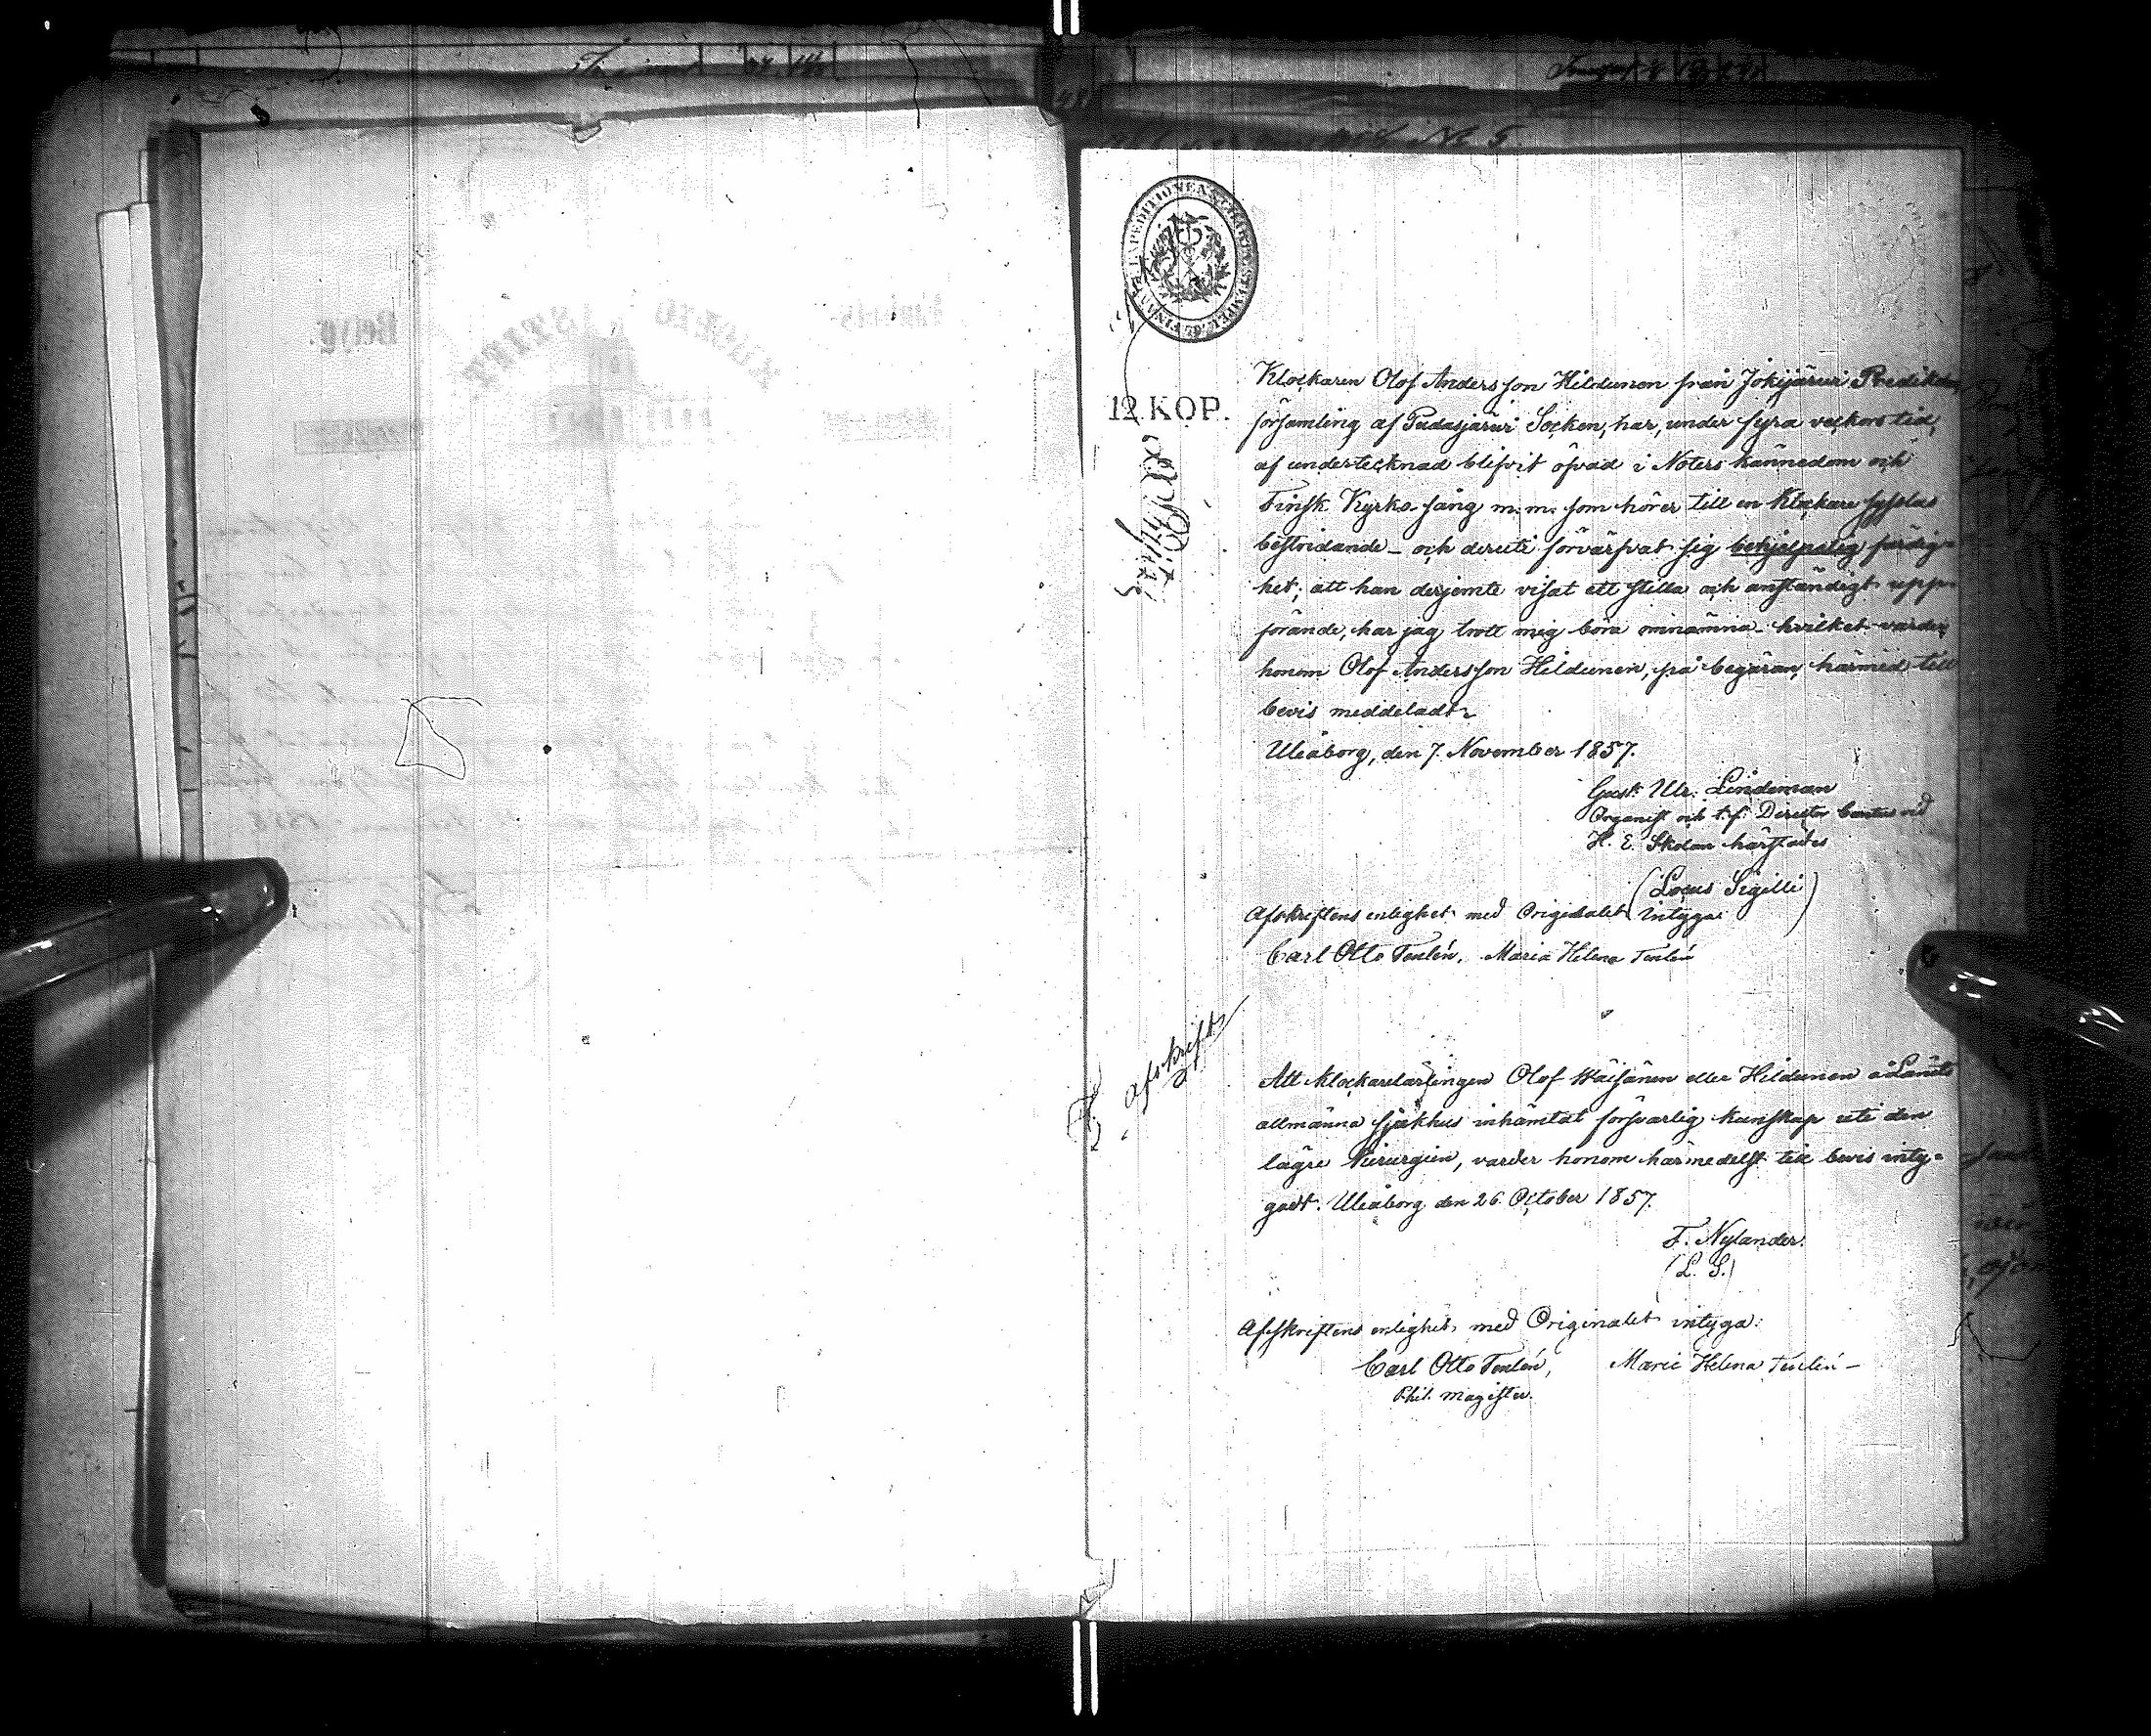 12 KOP.
Afskrift
Klockaren Olof Andersson Hildunen från Jokijärvi Prediko
församling af Pudasjärvi Socken, har, under fyra veckors tid,
af undertecknad blifvit öfvad i Noters kännedom och
Finsk Kyrko-sång m. m. som hörer till en Klockare sysslas
bestridande – och deruti förvärfvat sig behjelpelig färdig-
het; att han derjemte visat ett stilla och anständigt upp-
förande, har jag trott mig böra omnämna – hvilket varder
honom Olof Andersson Hildunen, på begäran, härmed till
bevis meddeladt.
Uleåborg, den 7. November 1857.
Gust. Ulr. Lindeman
Organist och t. f. Director Cantus vid
H. E. Skolan härstädes
(Locus Sigilli)
Afskriftens enlighet med Originalet intyga:
Carl Otto Maria Helena
Afskrift
Att klockarelärlingen Olof Wäisänen eller Hildunen å Länets
allmänna sjukhus inhämtat försvarlig kunskap uti den
lägre Kirurgien, varder honom härmedelst till bevis inty-
gadt. Uleåborg den 26. October 1857.
F. Nylander.
(L. S.)
Afskriftens enlighet med Originalet intyga:
Carl Otto Maria Helena
Phil. Magister.